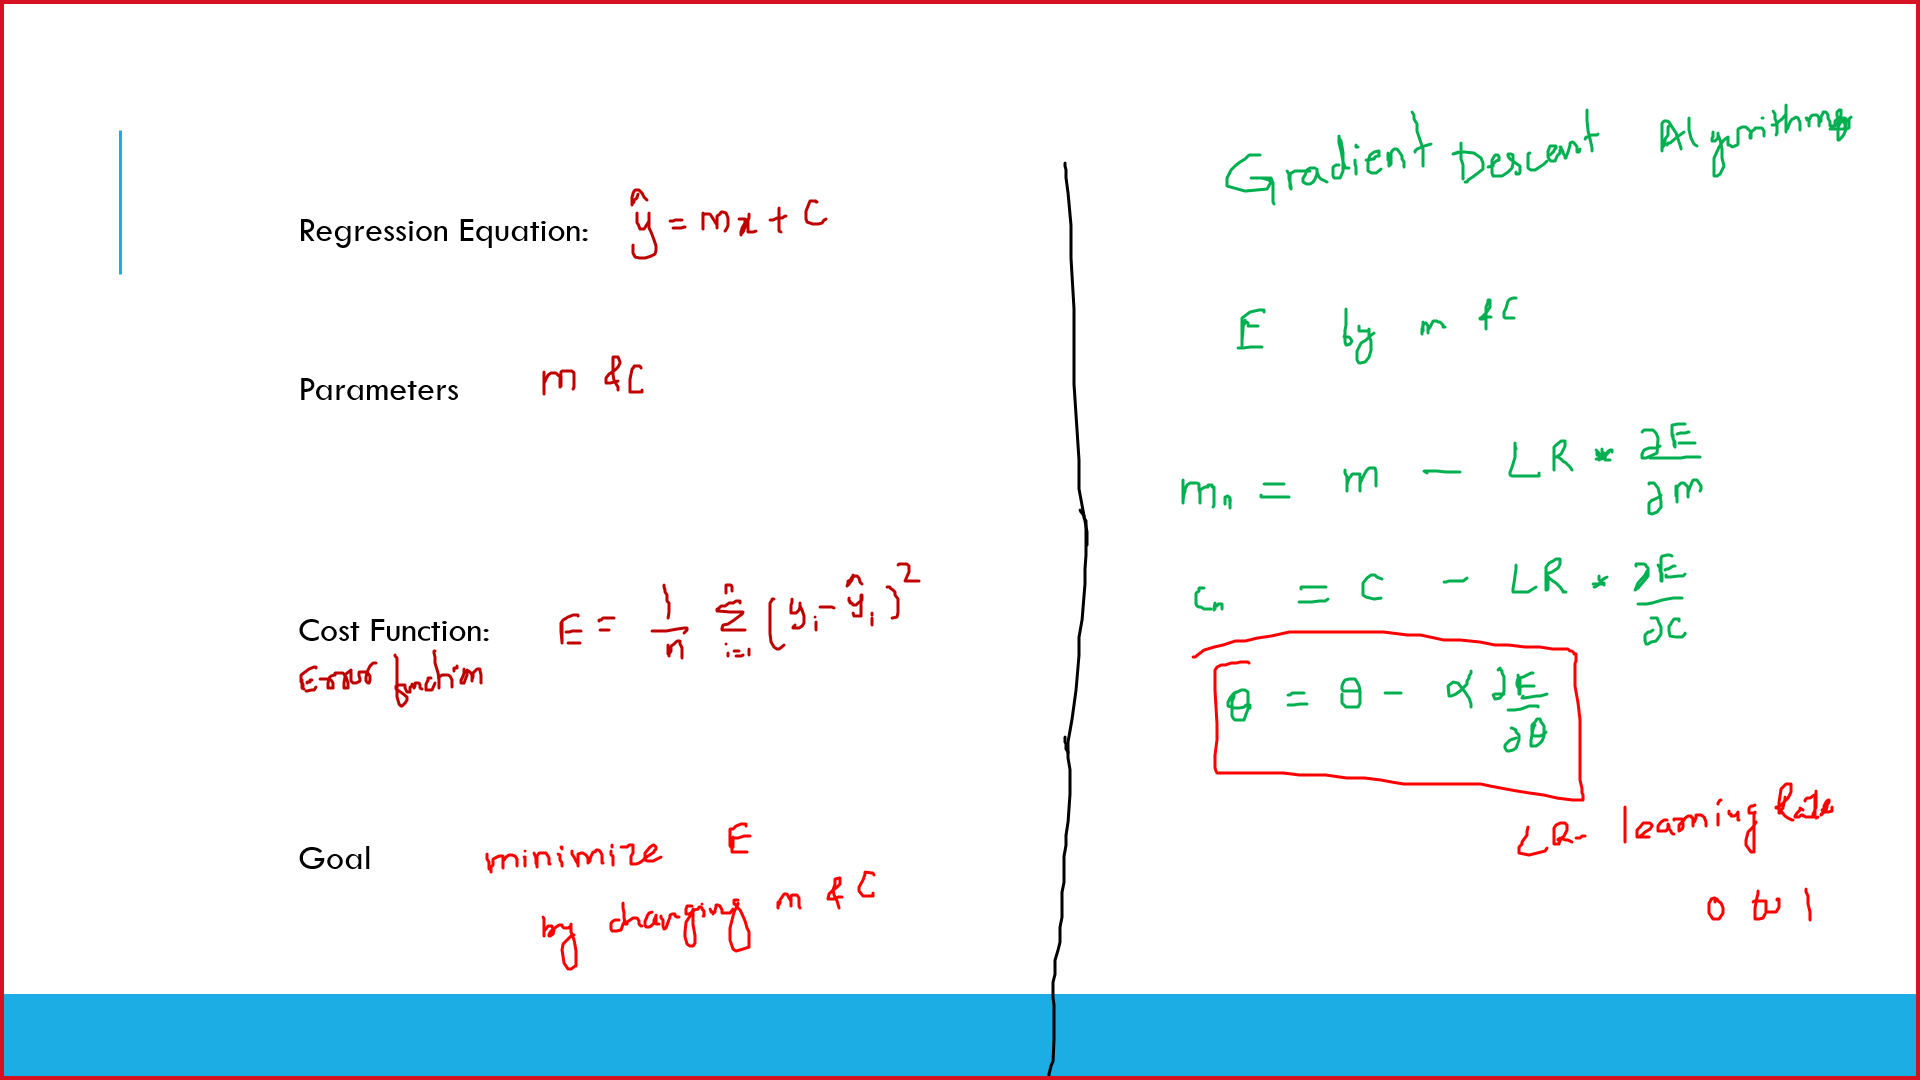 Regression Equation: ŷ = mx + c
Parameters m & c
Cost Function: E = 1/n Σ i=1 n (yi - ŷi)²
Error function
Goal minimize E
by changing m & c
Gradient Descent Algorithm
E by m & c
mn = m - LR * ∂E/∂m
cn = c - LR * ∂E/∂c
θ = θ - α ∂E/∂θ
LR - learning Rate
0 to 1